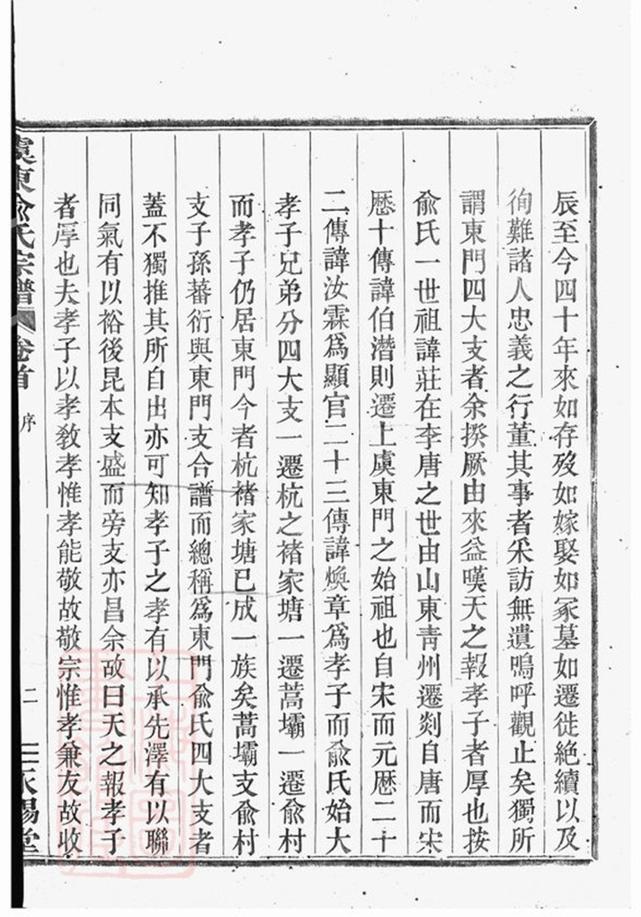 辰至今四十年來如存歿如嫁娶如冢墓如遷徙絶續以及
徇難諸人忠義之行董其事者采訪無遺嗚呼觀止矣獨所
謂東門四大支者余揆厥由來益嘆天之報孝子者厚也按
兪氏一世祖諱莊在李唐之世由山東靑州遷剡自唐而宋
歷十傳諱伯潛則遷上虞東門之始祖也自宋而元歷二十
二傳諱汝霖爲顯官二十三傳諱煥章爲孝子而兪氏始大
孝子兄弟分四大支一遷杭之褚家塘一遷蒿壩一遷兪村
而孝子仍居東門今者杭褚家塘已成一族矣蒿壩支兪村
支子孫蕃衍與東門支合譜而總稱爲東門兪氏四大支者
蓋不獨推其所自出亦可知孝子之孝有以承先澤有以聯
同氣有以裕後昆本支盛而旁支亦昌余故曰天之報孝子
者厚也夫孝子以孝敎孝惟孝能敬故敬宗惟孝兼友故收
虞東兪氏宗譜 卷首 序 二 永錫堂